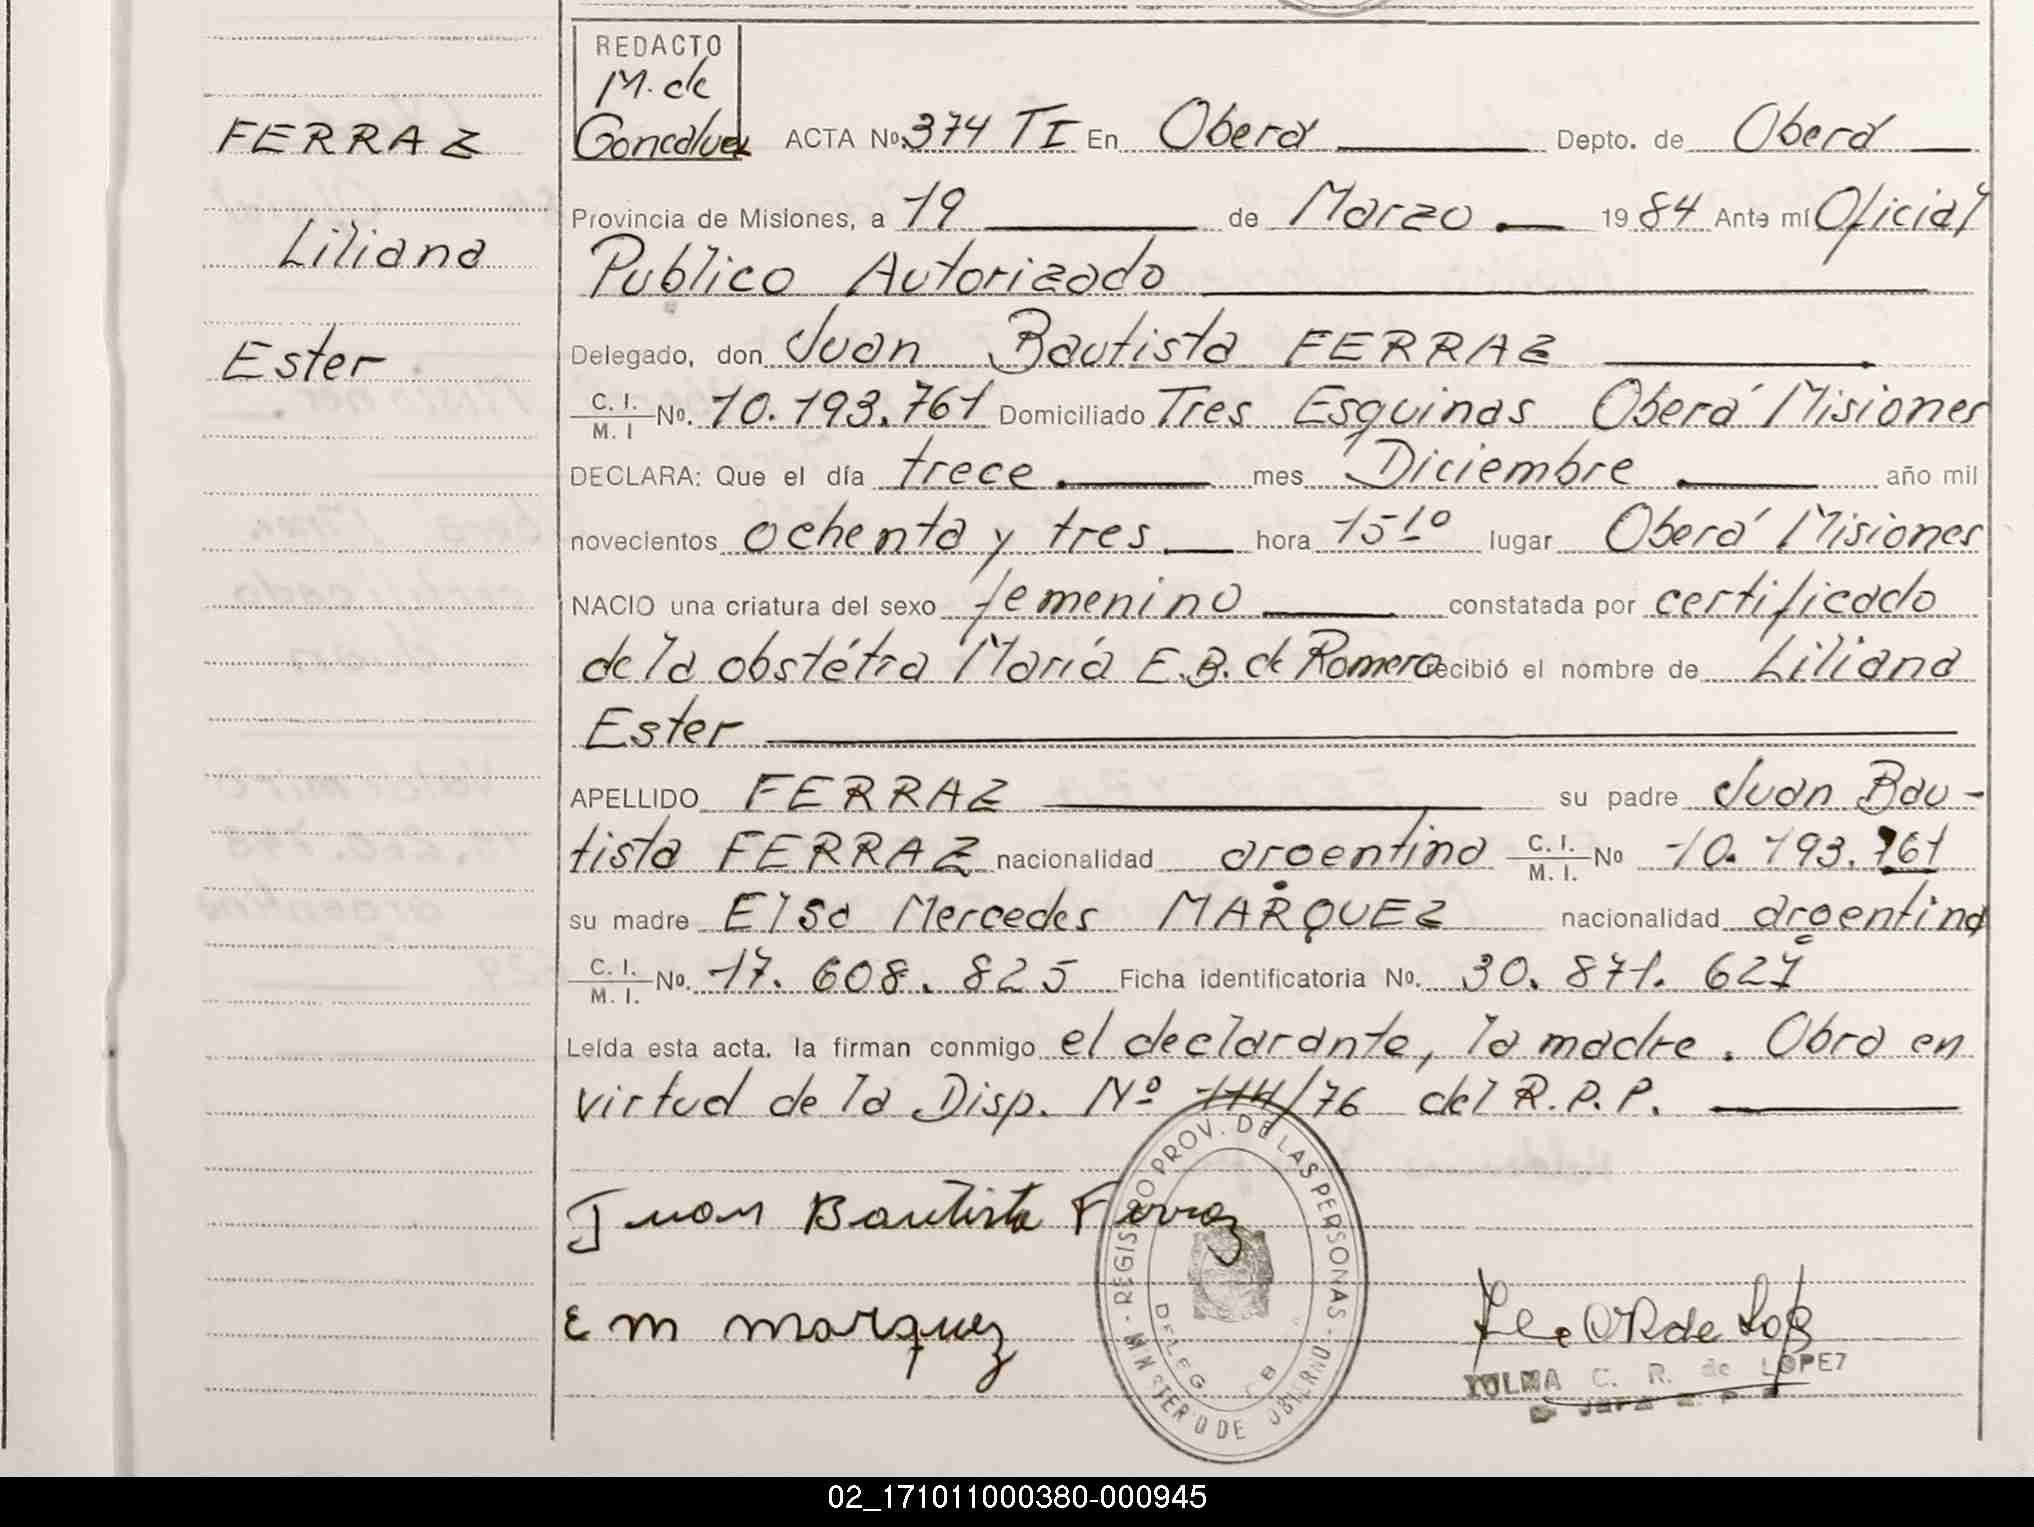 REDACTO
M. de
Goncalvez
FERRAZ
Liliana
Ester
ACTA Nº 374 TI En Oberá Depto. de Oberá
Provincia de Misiones, a 19 de Marzo 1984 Ante mí Oficial
Publico Autorizado
Delegado, don Juan Bautista FERRAZ
C. I. / M. I Nº. 10.193.761 Domiciliado Tres Esquinas Oberá Misiones
DECLARA: Que el día trece mes Diciembre año mil
novecientos ochenta y tres hora 15 1º lugar Oberá Misiones
NACIO una criatura del sexo femenino constatada por certificado
de la obstétra María E.B. de Romero recibió el nombre de Liliana
Ester
APELLIDO FERRAZ su padre Juan Bau-
tista FERRAZ nacionalidad argentina C. I. / M. I. Nº 10.193.761
su madre Elsa Mercedes MARQUEZ nacionalidad argentina
C. I. / M. I. Nº. 17.608.825 Ficha identificatoria No. 30.871.627
Leída esta acta. la firman conmigo el declarante, la madre. Obra en
virtud de la Disp. Nº 114/76 del R.P.P.
Juan Bautista Ferraz
E m marquez
REGISTRO PROV. DE LAS PERSONAS - MINISTERIO DE GOBIERNO -
DELEG.
C. R. de LOPEZ
02_171011000380-000945